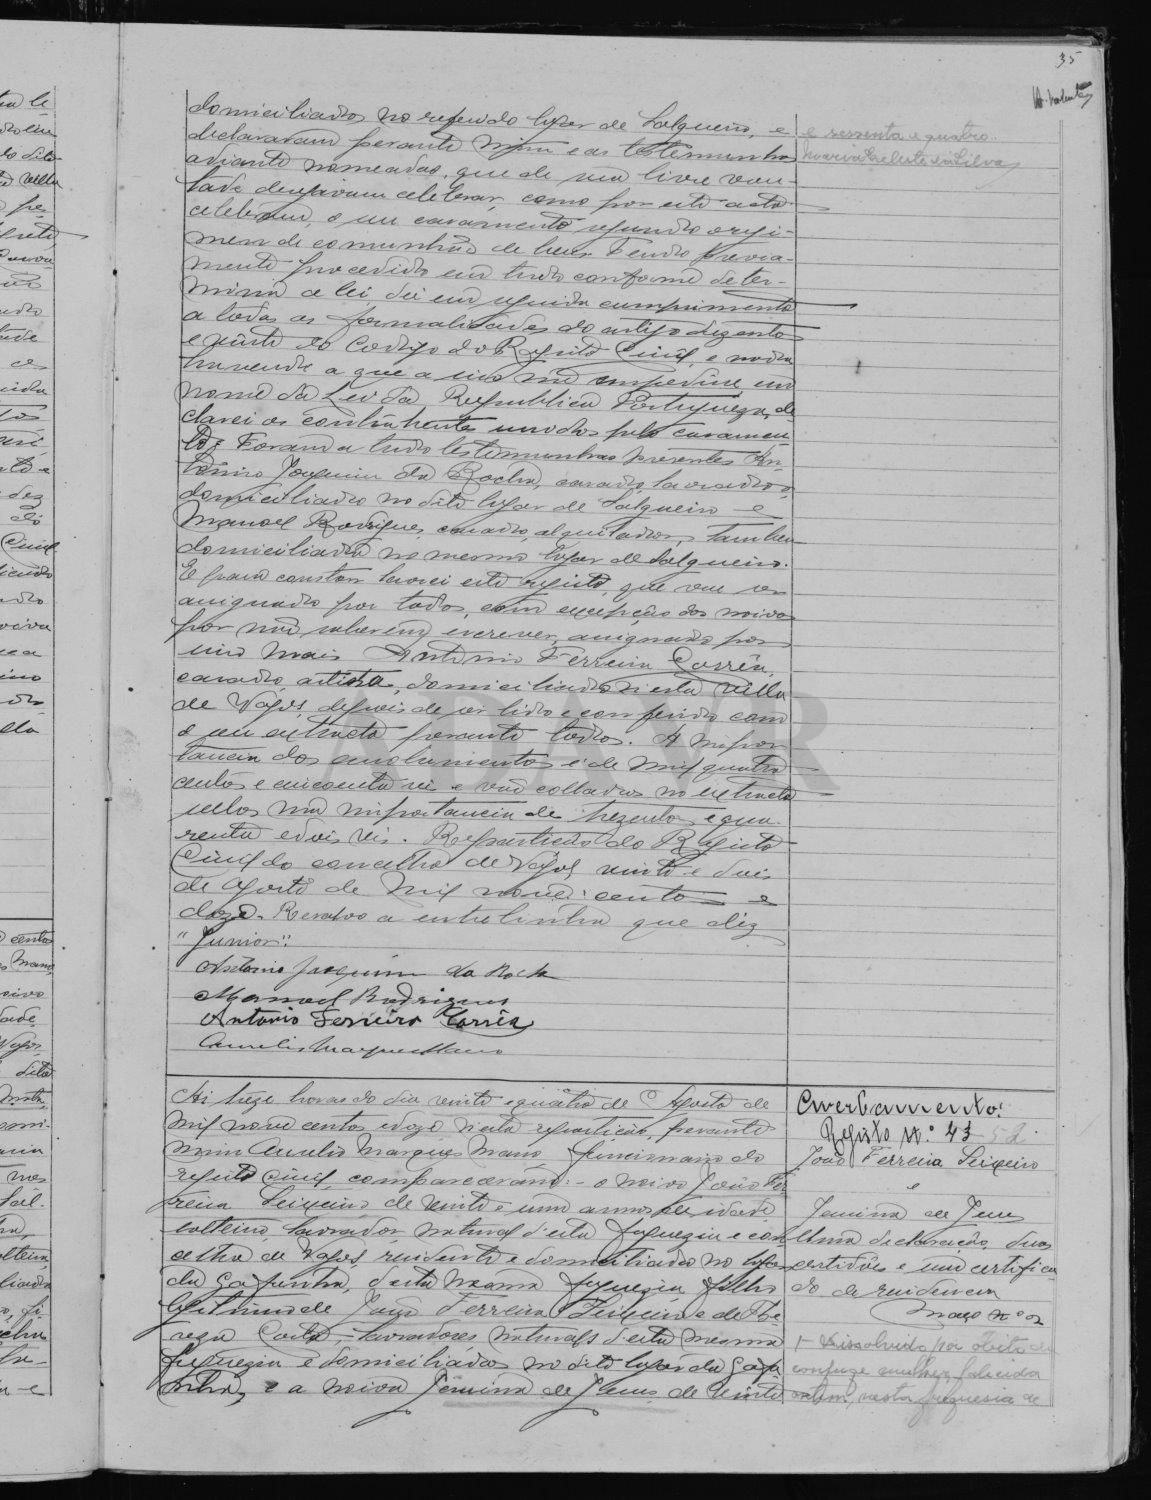 35
domiciliados no referido lugar de Salgueiro, e
declararam perante mim e as testemunhas
adiante nomeadas, que de sua livre von-
tade desejavam celebrar, como por este acto
celebram, o seu casamento segundo o regi-
men de comunhão de bens. Tendo previa-
mente procedido em tudo conforme deter-
mina a lei dei em seguida cumprimento
a todas as formalidades do artigo duzentos
e vinte do Codigo do Registo Civil, e nada
havendo a que a isso se impedisse em
nome da Lei da Republica Portugueza, de-
clarei os contrahentes unidos pelo casamen-
to. Foram a tudo testemunhas presentes An-
tonio Joaquim da Rocha, casado, lavrador e
domiciliado no dito lugar de Salgueiro e
Manoel Rodrigues, casado, alquilador, tambem
domiciliado no mesmo lugar de Salgueiro.
E para constar lavrei este registo, que vae ser
assignado por todos, com excepção dos noivos
por não saberem escrever, assignado por
isso mais Antonio Ferreira Corrêa,
casado, artista, domiciliado n'esta villa
de Vagos, depois de ser lido e conferido com
o seu extracto perante todos. A impor-
tancia dos emolumentos é de mil quatro
centos e cincoenta reis e vão collados no extracto
sellos na importancia de trezentos e qua-
renta e dois reis. Repartição do Registo
Civil do concelho de Vagos, vinte e dois
de Agosto de mil novecentos e
doze. Resalvo a entrelinha que diz
"Junior".
Antonio Joaquim da Rocha
Manoel Rodrigues
Antonio Ferreira Corrêa
Aurelio Marques Mano
e sessenta e quatro.
Maria Celeste Silva
Ás treze horas do dia vinte e quatro de Agosto de
mil nove centos e doze n'esta repartição, perante
mim Aurelio Marques Mano, funcionario do
registo civil, compareceram: - o noivo João Fer-
reira Seixeiro de vinte e um annos de idade
solteiro, lavrador, natural d'esta freguezia e con-
celho de Vagos, residente e domiciliado no lugar
da Gafanha, d'esta mesma freguezia, filho
legitimo de João Ferreira Seixeiro e de The-
reza Costa, lavradores naturaes d'esta mesma
freguezia e domiciliados no dito lugar da Gafa-
nha, e a noiva Jemina de Jesus de vinte
Averbamento:
Registo N.º 43 52
João Ferreira Seixeiro
e
Jemina de Jesus
Uma declaração, duas
certidões e um certifica-
do de residencia
Maço nº 2
1- Dissolvido por obito do
conjuge mulher, falecida
ontem, nesta freguesia de